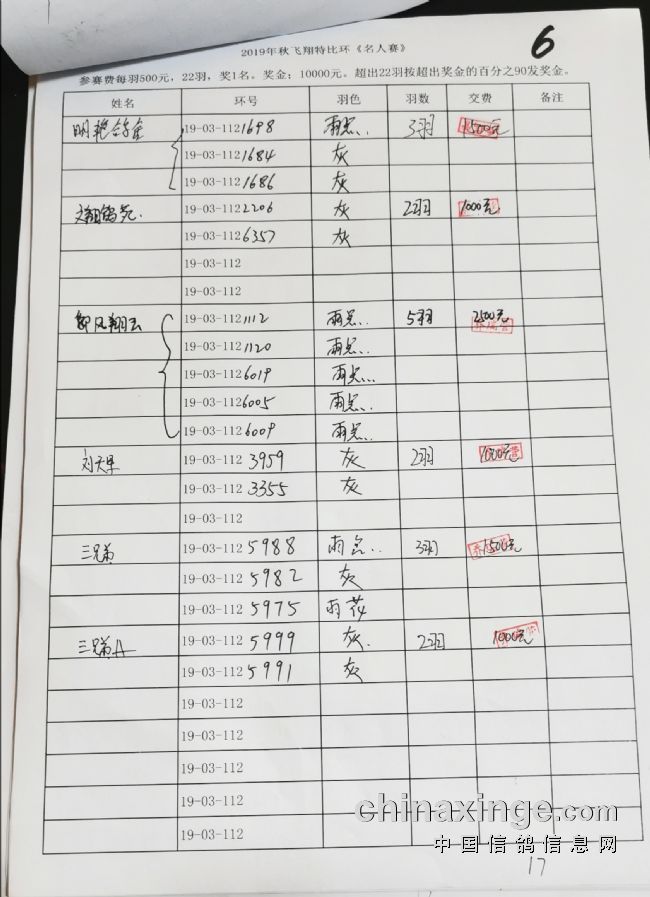 2019年秋飞翔特比环《名人赛》
6
参赛费每羽500元，22羽，奖1名。奖金：10000元。超出22羽按超出奖金的百分之90发奖金。
姓名 环号 羽色 羽数 交费 备注
19-03-112 1698 雨点 3羽 1500元
19-03-112 1684 灰
19-03-112 1686 灰
19-03-112 2206 灰 2羽 1000元
19-03-112 6357 灰
19-03-112
19-03-112
19-03-112 1112 雨点 5羽 2500元
19-03-112 1120 雨点
19-03-112 6019 雨点
19-03-112 6005 雨点
19-03-112 6009 雨点
19-03-112 3959 灰 2羽 1000元
19-03-112 3355 灰
19-03-112
三兄弟 19-03-112 5988 雨点 3羽 1500元
19-03-112 5982 灰
19-03-112 5975 雨花
三兄弟A 19-03-112 5999 灰 2羽 1000元
19-03-112 5991 灰
19-03-112
19-03-112
19-03-112
19-03-112
19-03-112
chinaxinge.com
中国信鸽信息网
17